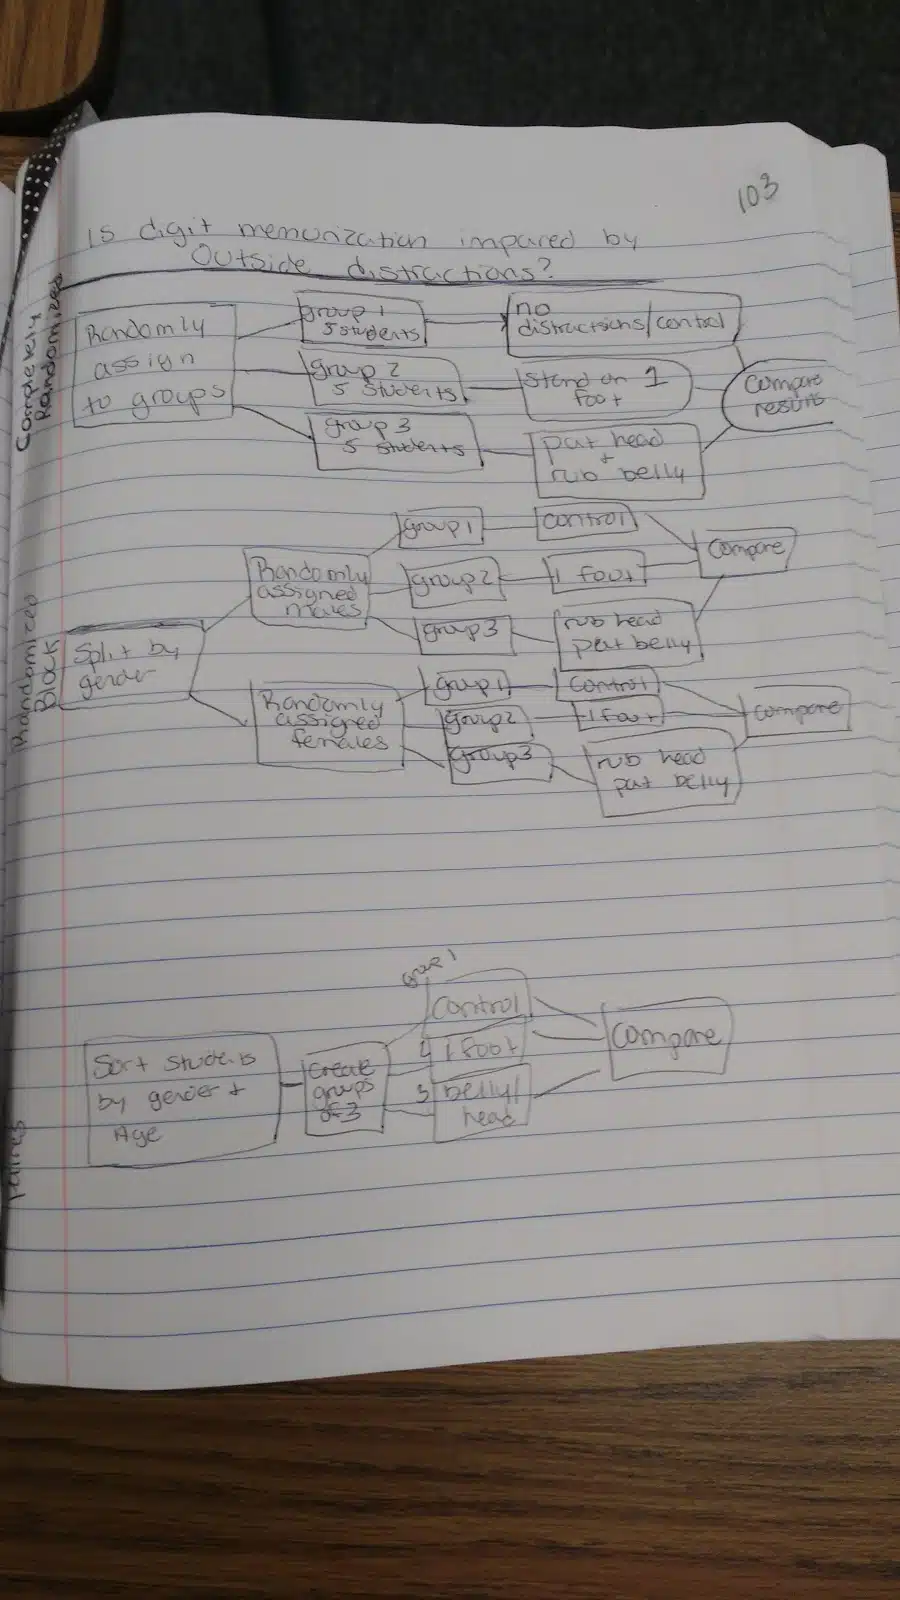 103
is digit memorization impared by
Outside distractions?
Completely
Randomized
Randomly
assign
to groups
group 1
5 students
no
distractions/control
group 2
5 students
stand on 1
foot
group 3
5 students
pat head
+
rub belly
Compare
results
Randomized
Block
Split by
gender
Randomly
assigned
males
group1
control
group2
1 foot
group3
rub head
pat belly
compare
Randomly
assigned
females
group1
control
group2
1 foot
group3
rub head
pat belly
compare
Sort students
by gender +
Age
create
groups
of 3
1
Control
2 1 foot
3 belly/
head
compare